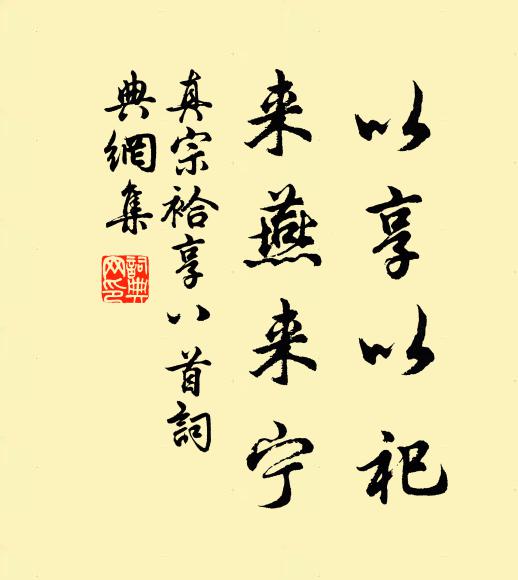 以享以祀
来燕来宁
真宗祫享八首詞
典網集
詞典
网印